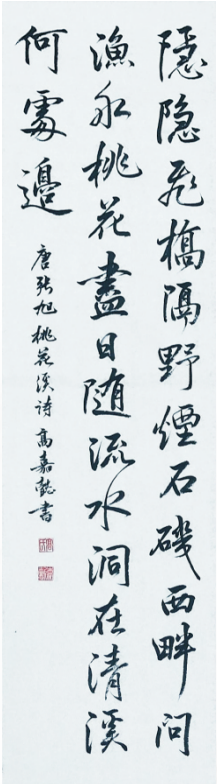 隱隐飛橋隔野煙石磯西畔問
漁船桃花盡日随流水洞在清溪
何處邊
唐張旭桃花溪詩 高嘉懿書